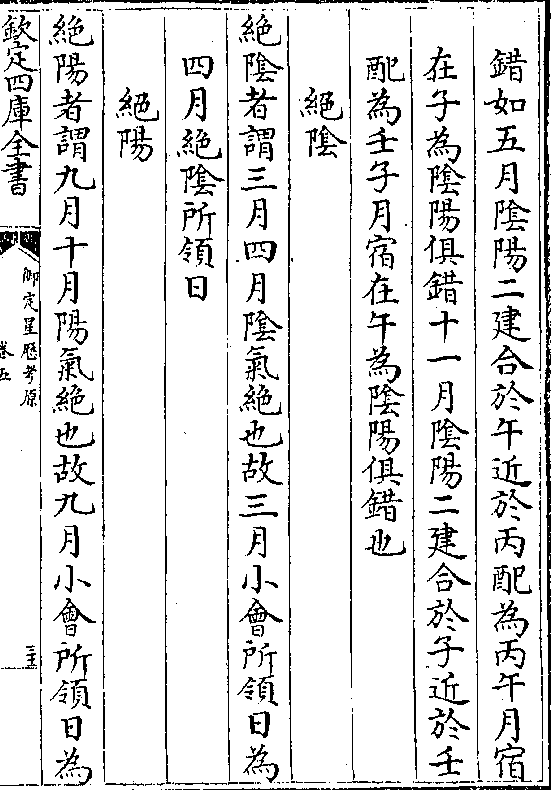 錯如五月陰陽二建合於午近於丙配為丙午月宿
在子為陰陽俱錯十一月陰陽二建合於子近於壬
配為壬子月宿在午為陰陽俱錯也
絕陰
絕陰者謂三月四月陰氣絕也故三月小會所領日為
四月絕陰所領日
絕陽
絕陽者謂九月十月陽氣絕也故九月小會所領日為
欽定四庫全書
御定星歷考原
卷五